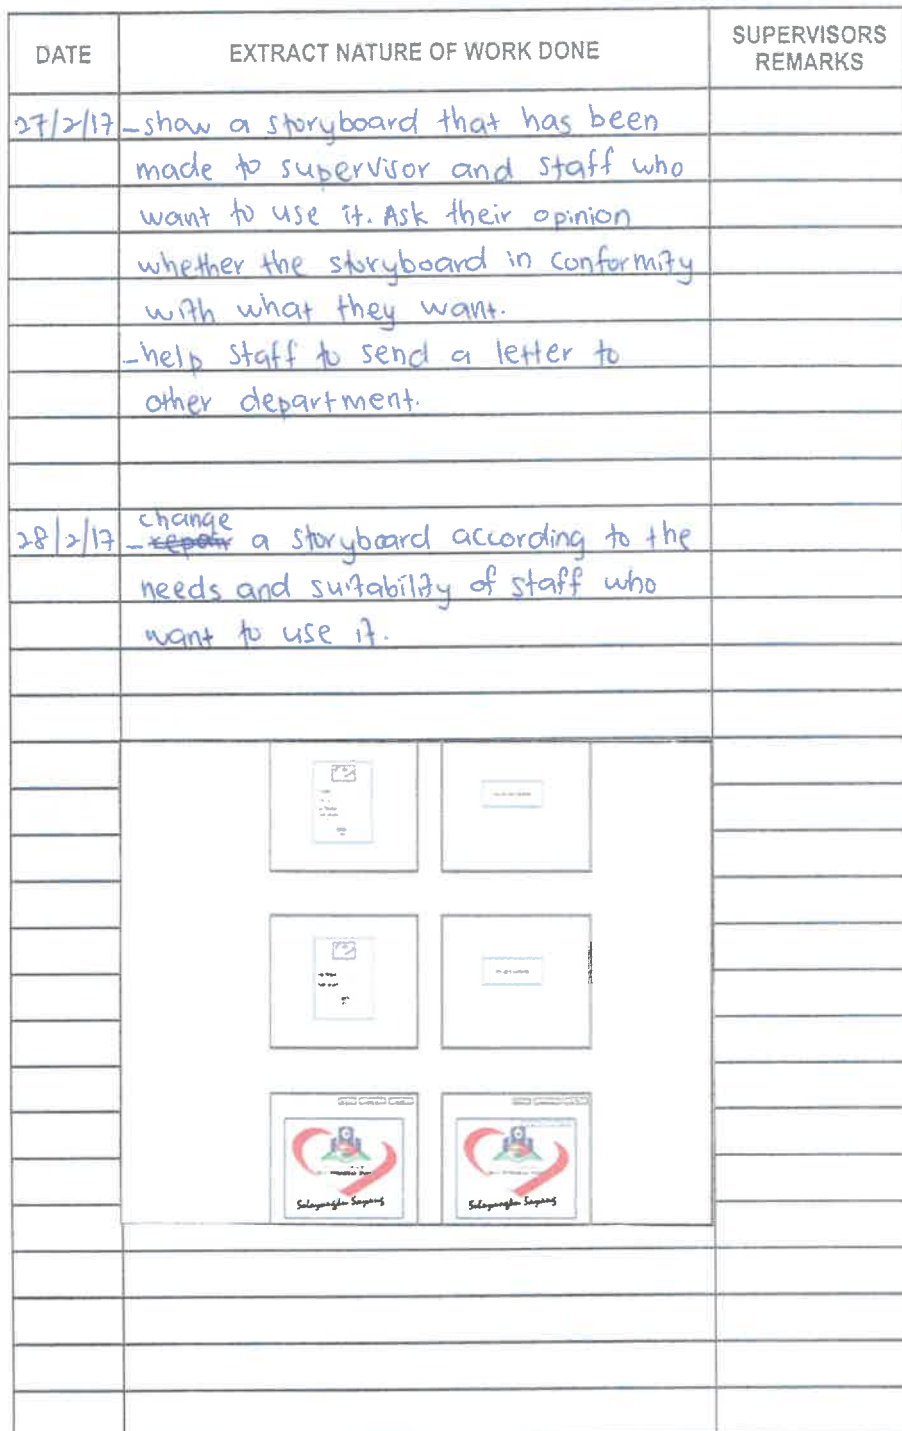 DATE
EXTRACT NATURE OF WORK DONE
SUPERVISORS
REMARKS
27/2/17
- show a storyboard that has been
made to supervisor and staff who
want to use it. Ask their opinion
whether the storyboard in conformity
with what they want.
- help staff to send a letter to
other department.
28/2/17
change
- repair a storyboard according to the
needs and suitability of staff who
want to use it.
Selayangku Sayang
Selayangku Sayang